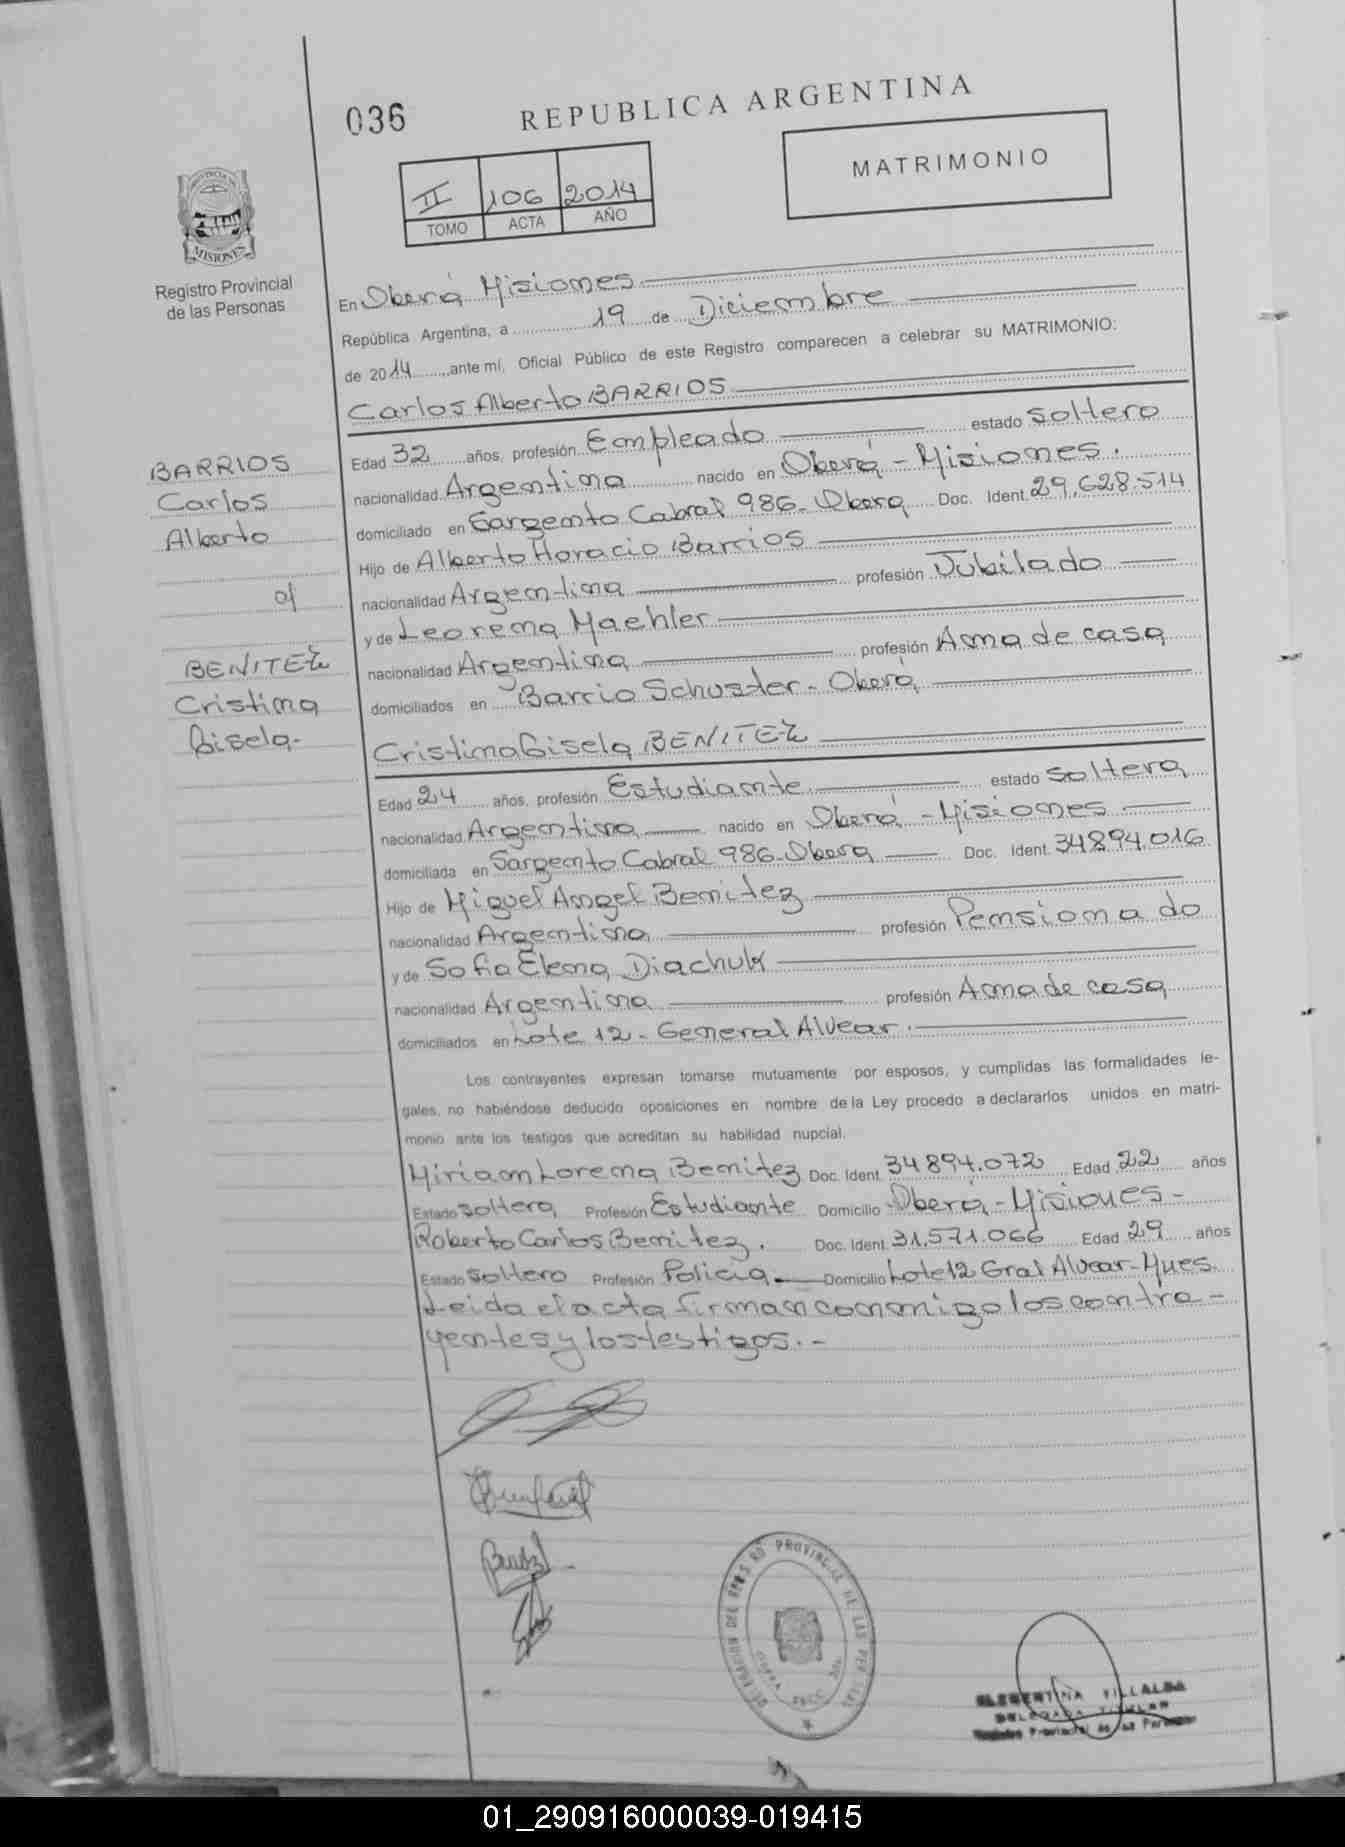 036
REPUBLICA ARGENTINA
MATRIMONIO
II 106 2014
TOMO ACTA AÑO
PROVINCIA DE
MISIONES
Registro Provincial
de las Personas
En Oberá Misiones
República Argentina, a 19 de Diciembre
de 2014, ante mí, Oficial Público de este Registro comparecen a celebrar su MATRIMONIO:
Carlos Alberto BARRIOS
Edad 32 años, profesión Empleado estado soltero
nacionalidad Argentina nacido en Oberá - Misiones.
domiciliado en Sargento Cabral 986 - Oberá Doc. Ident. 29.628.514
Hijo de Alberto Horacio Barrios
nacionalidad Argentina profesión Jubilado
y de Lorena Maehler
nacionalidad Argentina profesión Ama de casa
domiciliados en Barrio Schuster - Oberá
BARRIOS
Carlos
Alberto
c/
BENITEZ
Cristina
Gisela.-
Cristina Gisela BENITEZ
Edad 24 años, profesión Estudiante estado soltera
nacionalidad Argentina nacido en Oberá - Misiones
domiciliada en Sargento Cabral 986 - Oberá Doc. Ident. 34894.016
Hijo de Miguel Angel Benitez
nacionalidad Argentina profesión Pensionado
y de Sofia Elena Diachuk
nacionalidad Argentina profesión Ama de casa
domiciliados en Lote 12 - General Alvear.
Los contrayentes expresan tomarse mutuamente por esposos, y cumplidas las formalidades le-
gales, no habiéndose deducido oposiciones en nombre de la Ley procedo a declararlos unidos en matri-
monio ante los testigos que acreditan su habilidad nupcial.
Miriam Lorena Benitez Doc. Ident. 34894.072 Edad 22 años
Estado soltera Profesión Estudiante Domicilio Oberá - Misiones -
Roberto Carlos Benitez. Doc. Ident. 31.571.066 Edad 29 años
Estado soltero Profesión Policia Domicilio Lote 12 Gral Alvear - Mnes.
Leida el acta firman conmigo los contra-
yentes y los testigos.-
PROVINCIAL DE LAS PERSONAS
CLEMENTINA VILLALBA
DELEGADA TITULAR
Registro Provincial de las Personas
01_290916000039-019415